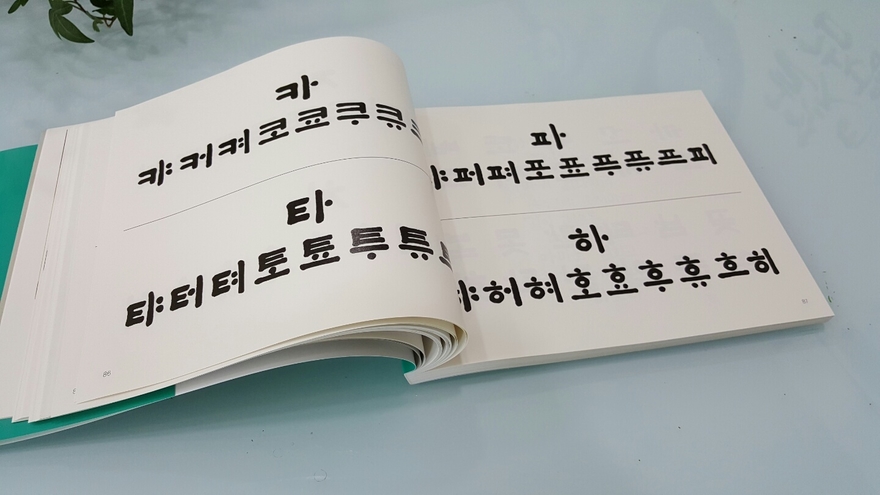 카
캬커켜코쿄쿠큐
타
탸터텨토툐투튜
86
파
퍼펴포표푸퓨프피
하
허혀호효후휴흐히